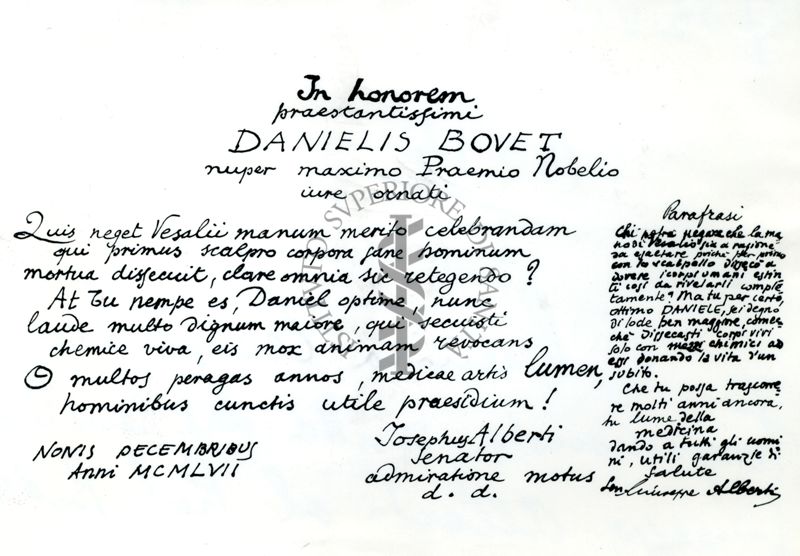 In honorem
praestantissimi
DANIELIS BOVET
nuper maximo Praemio Nobelio
iure ornati
Quis neget Vesalii manum merito celebrandam
qui primus scalpro corpora sane hominum
mortua dissecuit, clare omnia sic retegendo?
At tu nempe es, Daniel optime, nunc
laude multo dignum maiore, qui secuisti
chemice viva, eis mox animam revocans
O multos peragas annos, medicae artis lumen,
hominibus cunctis utile praesidium!
NONIS DECEMBRIBUS
Anni MCMLVII
Josephus Alberti
Senator
admiratione motus
d. d.
Parafrasi
Chi potrà negare che la ma
no di Vesalio sia a ragione
da esaltare poiché per primo
con lo scalpello dissecò a
dovere i corpi umani estin
ti così da rivelarli comple
tamente? Ma tu per certo,
ottimo DANIELE, sei degno
di lode ben maggiore,
ché dissecasti corpi vivi
solo con mezzi chimici ad
essi donando la vita d'un
subito.
Che tu possa trascorre
re molti anni ancora,
tu lume della
medicina
dando a tutti gli uomi
ni, utili garanzie di
salute
Sen Giuseppe Alberti
ISTITVTO SVPERIORE DI SANITA